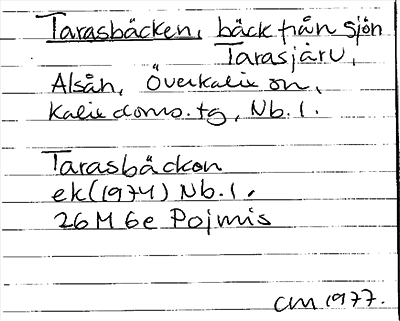 Tarasbäcken, bäck från sjön
Tarasjärv,
Alsån, Överkalix sn,
Kalix doms.tg, Nb.l.
Tarasbäcken
ek(1974) Nb.l.
26M 6e Pojmis
CM 1977.